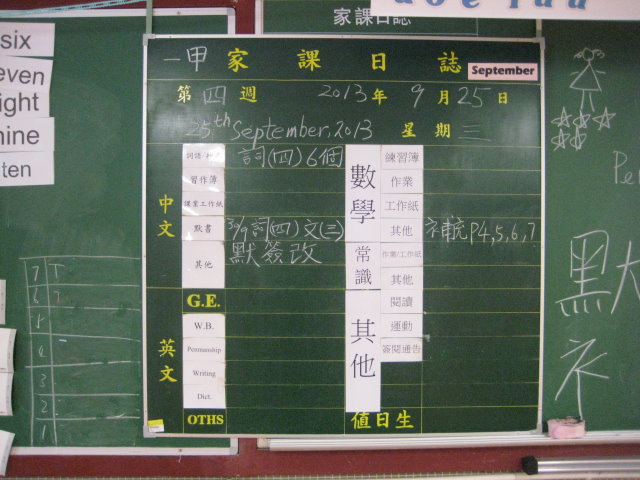 家課日誌
six
even
ight
nine
ten
一甲 家課日誌
September
第四週 2013年9月25日
25th September, 2013 星期三
中文
詞語/抄寫 詞(四)6個
習作簿
課業工作紙
默書 30/9 詞(四)文(三)
其他 默簽改
英文
G.E.
W.B.
Penmanship
Writing
Dict.
OTHS
數學
練習簿
作業
工作紙
其他 補充P4,5,6,7
常識
作業/工作紙
其他
其他
閱讀
運動
簽閱通告
值日生
7
6
5
4
3
2
1
默